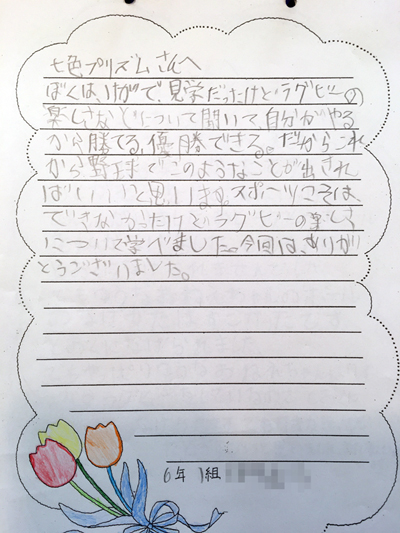 七色プリズムさんへ
ぼくは、けがで、見学だったけどラグビーの
楽しさなどについて聞いて、自分がやる
から勝てる,優勝できる。だからこれ
から野球でこのようなことが出され
ばいいと思います。スポーツこそは、
できなかったけどラグビーの楽しさ
について学べました。今回は、ありが
とうございました。
6年 1組